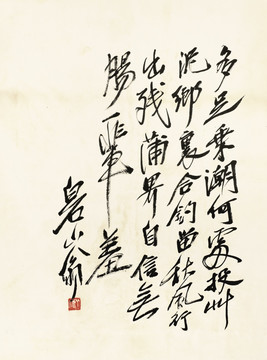 多足乘潮何處投艸
泥鄉裏合鈎留秋風行
出殘蒲界自信無
腸一輩羞
白石山翁